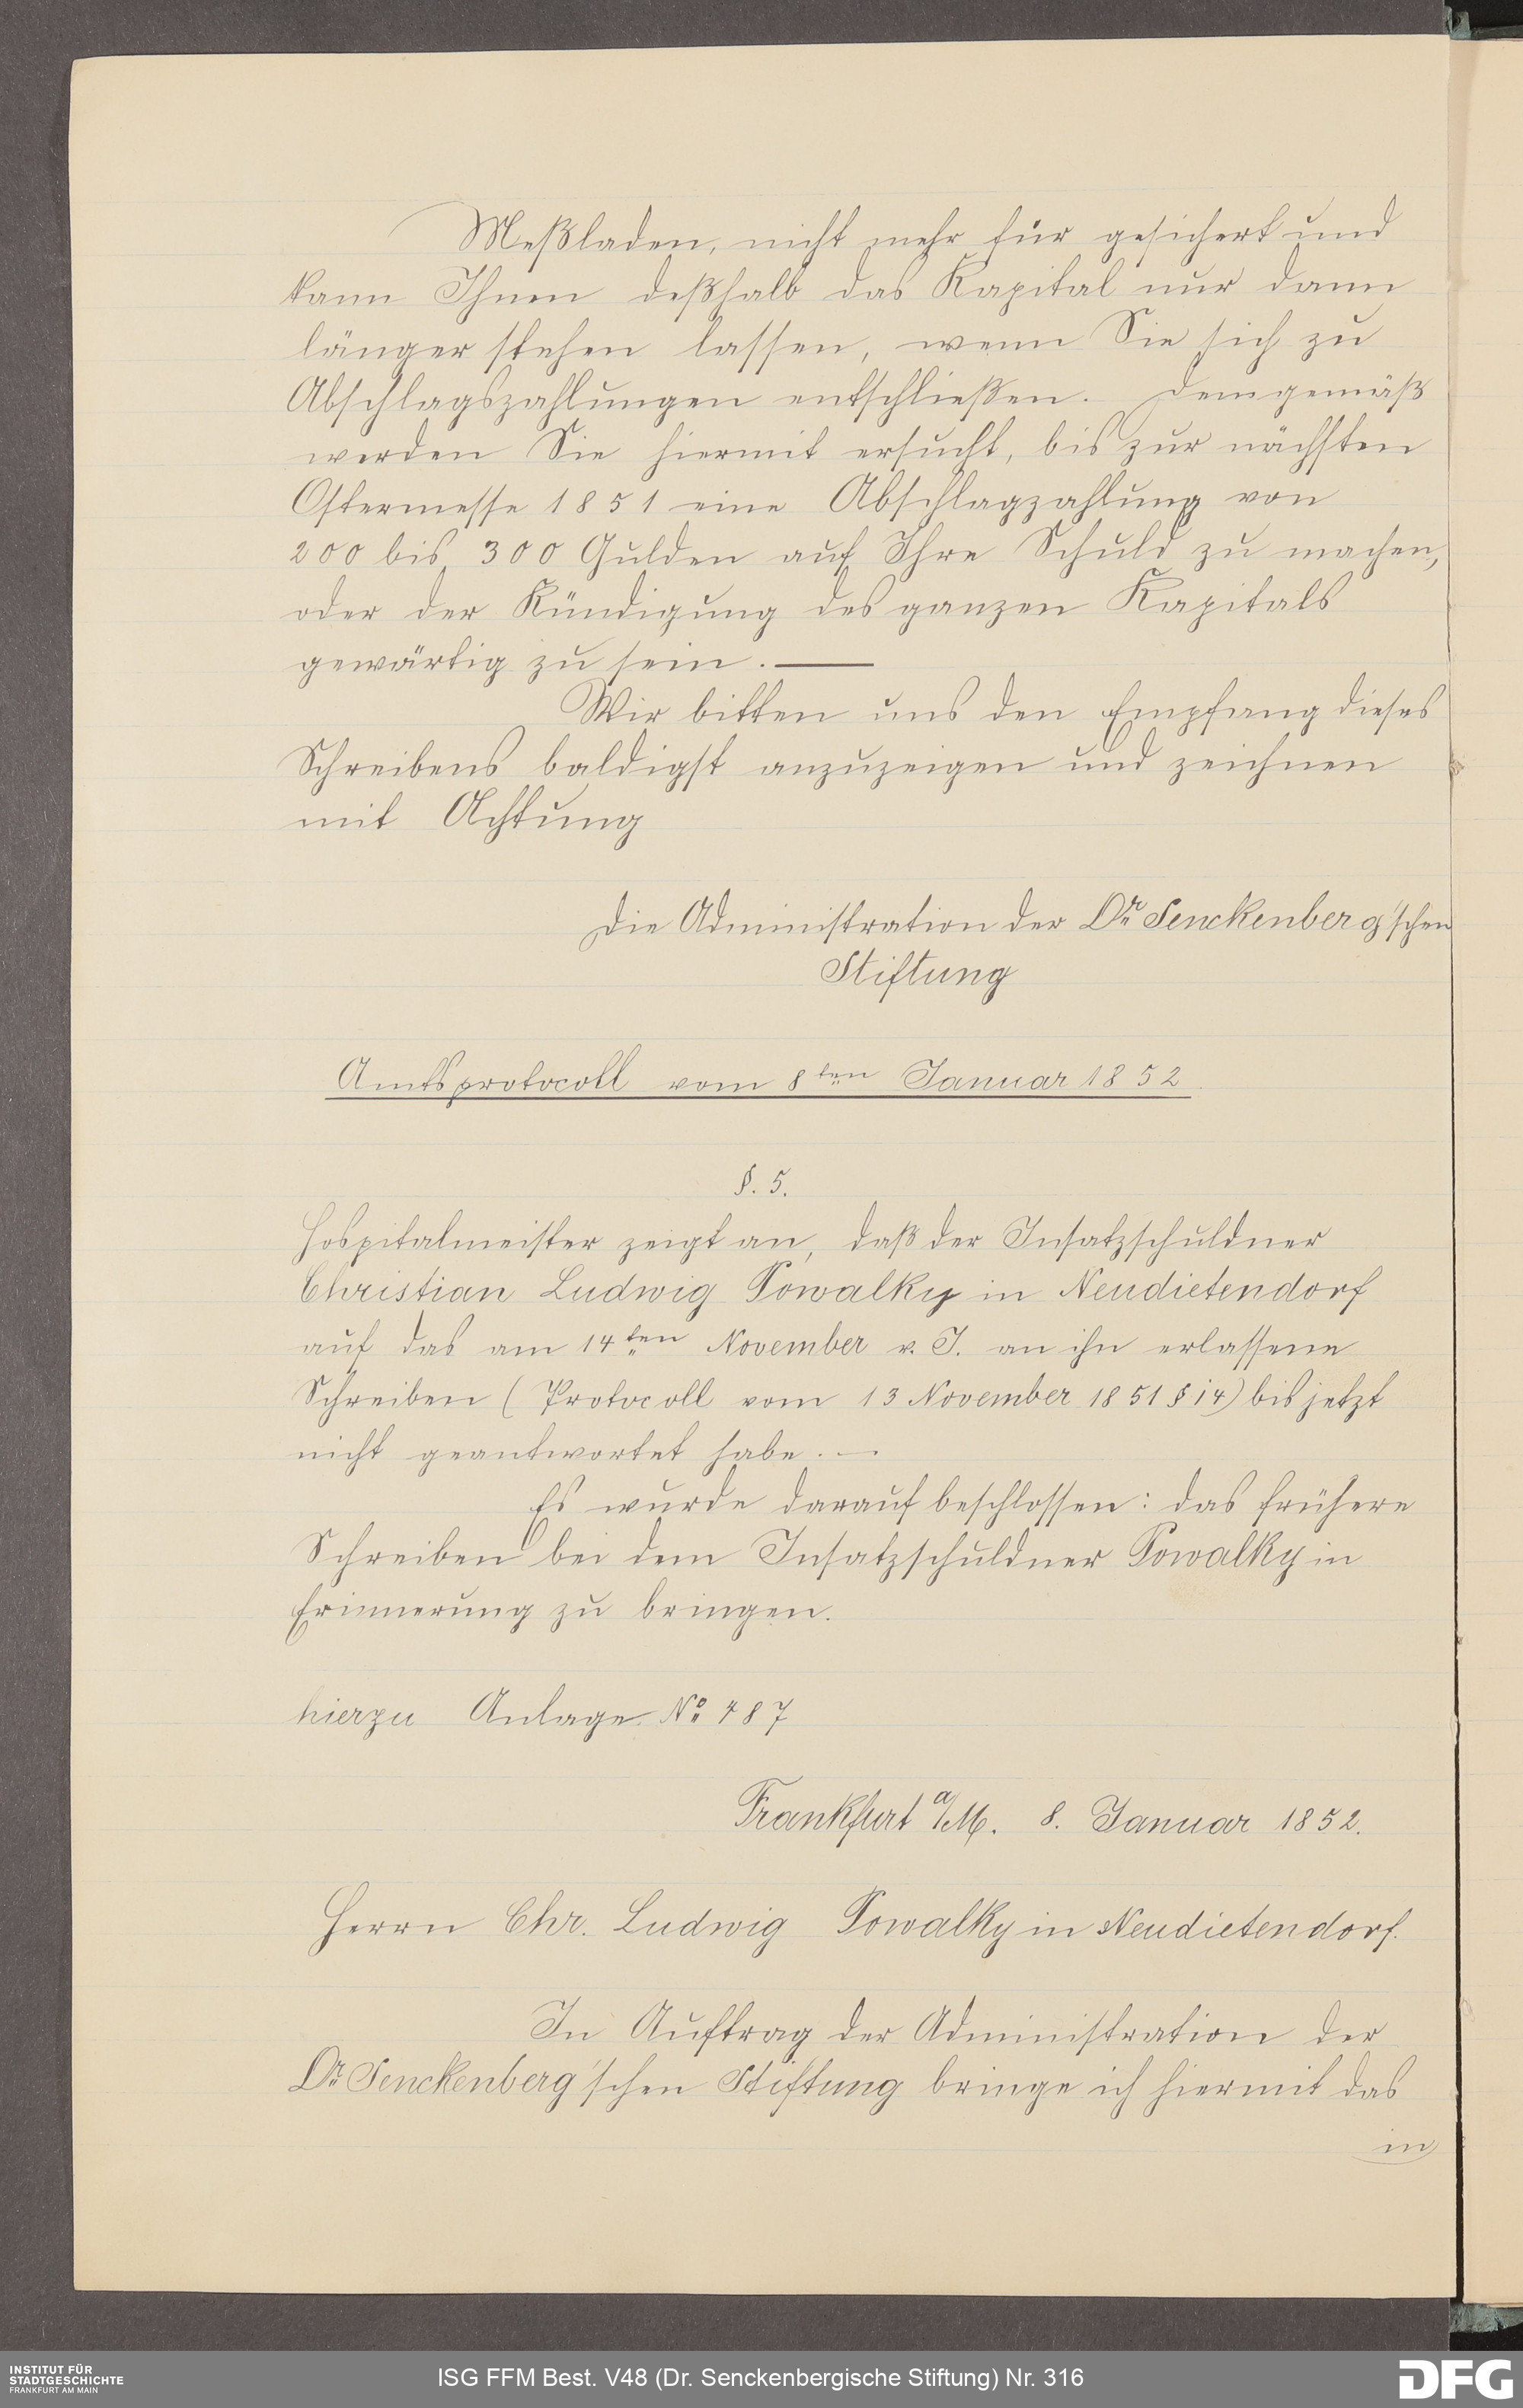 Meßladen, nicht mehr für gesichert und
kann Ihnen deßhalb das Kapital nur dann
länger stehen lassen, wenn Sie sich zu
Abschlagszahlungen entschließen. Demgemäß
werden Sie hiermit ersucht, bis zur nächsten
Ostermesse 1851 eine Abschlagzahlung von
200 bis 300 Gulden auf Ihre Schuld zu machen,
oder der Kündigung des ganzen Kapitals
gewärtig zu sein. —
Wir bitten uns den Empfang dieses
Schreibens baldigst anzuzeigen und zeichnen
mit Achtung
Die Administration der Dr. Senckenberg'schen
Stiftung
Amtsprotocoll vom 8ten Januar 1852
§. 5.
Hospitalmeister zeigt an, daß der Insatzschuldner
Christian Ludwig Powalky in Neudietendorf
auf das am 14ten November v. J. an ihn erlassene
Schreiben (Protocoll vom 13 November 1851 § 14) bis jetzt
nicht geantwortet habe. —
Es wurde darauf beschlossen: das frühere
Schreiben bei dem Insatzschuldner Powalky in
Erinnerung zu bringen.
hierzu Anlage No 487
Frankfurt a/M. 8. Januar 1852.
Herrn Chr. Ludwig Powalky in Neudietendorf.
In Auftrag der Administration der
Dr. Senckenberg'schen Stiftung bringe ich hiermit das
in
INSTITUT FÜR
STADTGESCHICHTE
FRANKFURT AM MAIN
ISG FFM Best. V48 (Dr. Senckenbergische Stiftung) Nr. 316
DFG